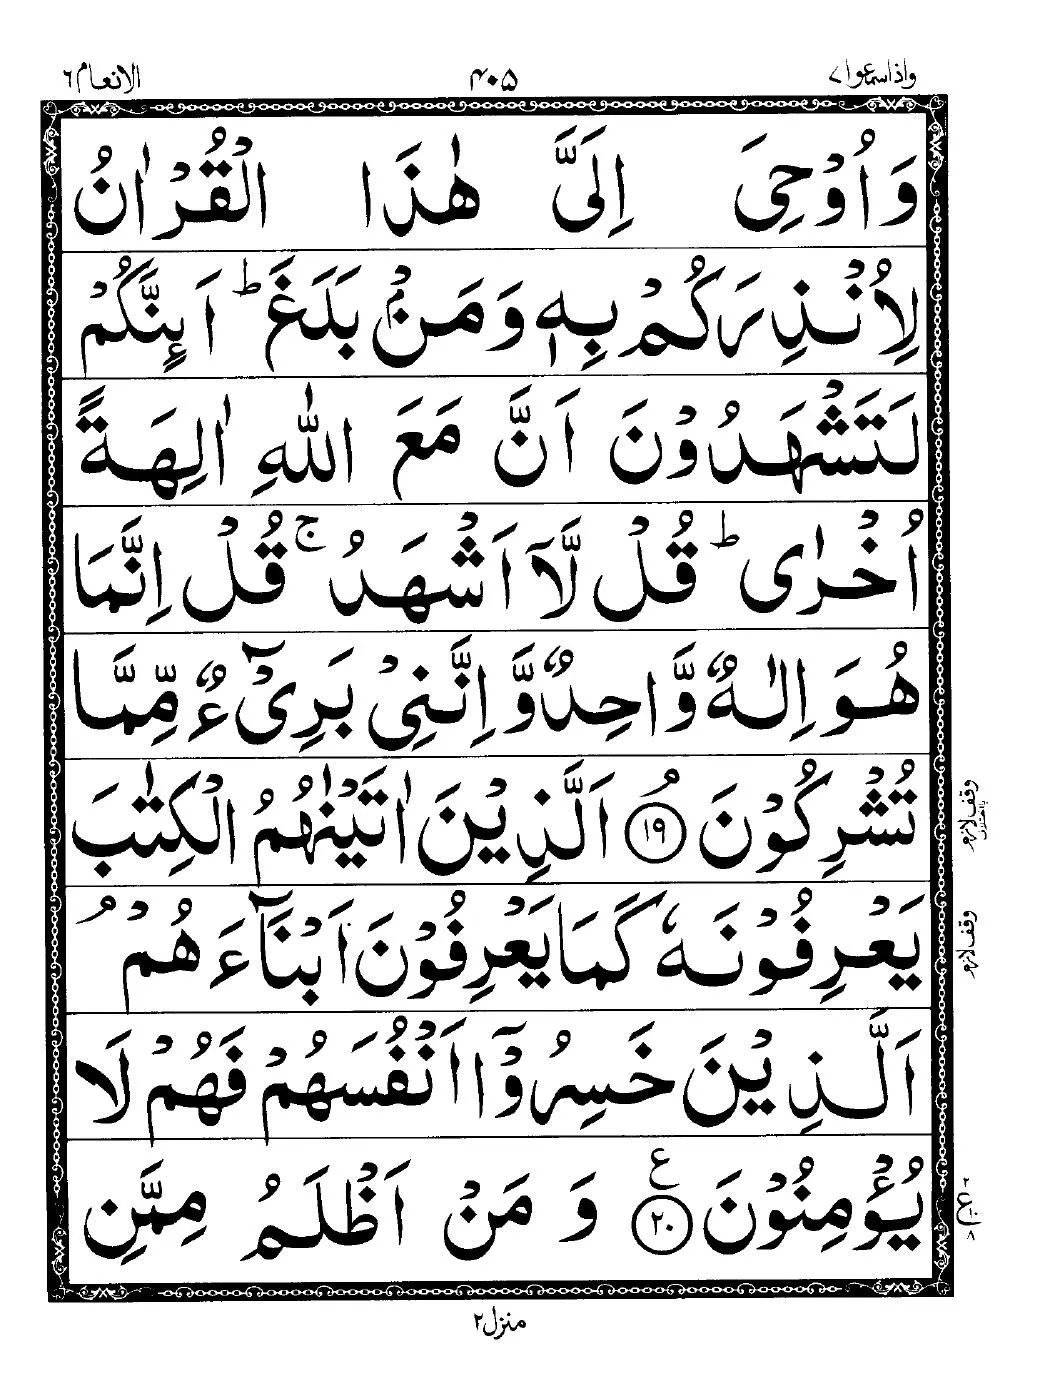 واذا سمعوا ٧
۴۰۵
الانعام ٦
وَاُوْحِیَ اِلَیَّ هٰذَا الْقُرْاٰنُ
لِاُنْذِرَكُمْ بِهٖ وَمَنْۢ بَلَغَ ؕ اَئِنَّكُمْ
لَتَشْهَدُوْنَ اَنَّ مَعَ اللّٰهِ اٰلِهَةً
اُخْرٰی ؕ قُلْ لَّاۤ اَشْهَدُ ۚ قُلْ اِنَّمَا
هُوَ اِلٰهٌ وَّاحِدٌ وَّاِنَّنِیْ بَرِیْٓءٌ مِّمَّا
تُشْرِكُوْنَ ۘ ﴿١٩﴾ اَلَّذِیْنَ اٰتَیْنٰهُمُ الْكِتٰبَ
یَعْرِفُوْنَهٗ كَمَا یَعْرِفُوْنَ اَبْنَآءَهُمْ ۘ
اَلَّذِیْنَ خَسِرُوْۤا اَنْفُسَهُمْ فَهُمْ لَا
یُؤْمِنُوْنَ ﴿٢٠﴾ ع وَمَنْ اَظْلَمُ مِمَّنِ
وقف لازم
وقف لازم
ع
منزل ٢